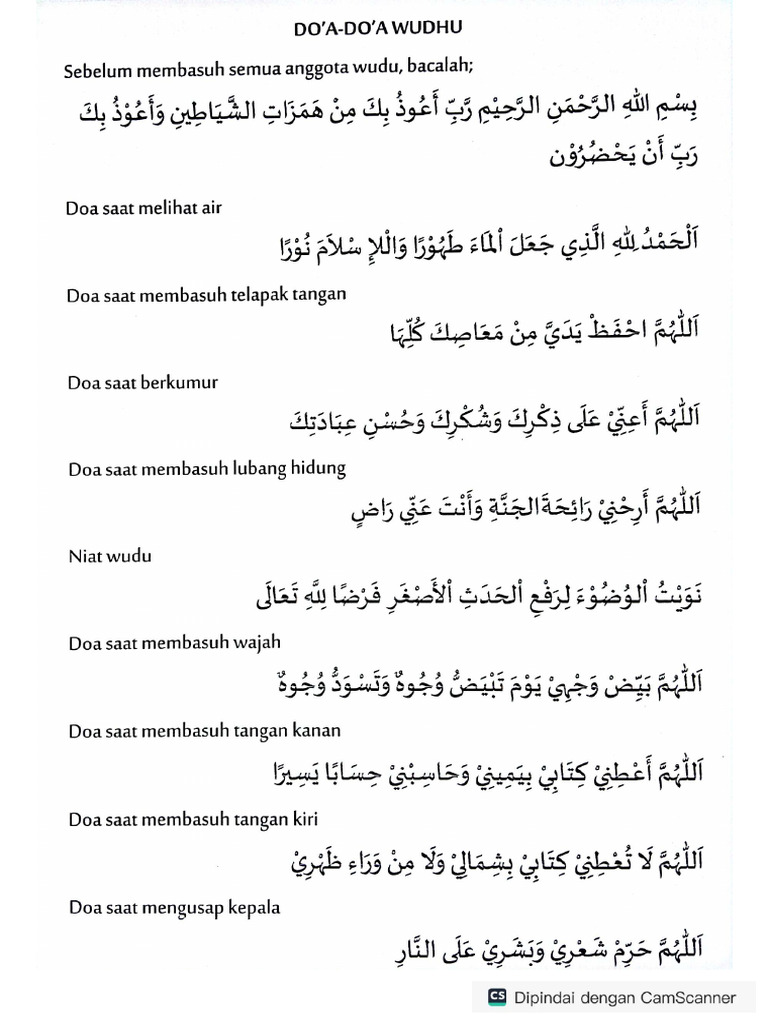 DO'A-DO'A WUDHU
Sebelum membasuh semua anggota wudu, bacalah;
بِسْمِ اللهِ الرَّحْمَنِ الرَّحِيْمِ رَّبِّ أَعُوذُ بِكَ مِنْ هَمَزَاتِ الشَّيَاطِينِ وَأَعُوْذُ بِكَ
رَبِّ أَنْ يَحْضُرُوْن
Doa saat melihat air
اَلْحَمْدُ لِلّٰهِ الَّذِي جَعَلَ اْلمَاءَ طَهُوْرًا وَالْلإِ سْلاَمَ نُوْرًا
Doa saat membasuh telapak tangan
اَللّٰهُمَّ احْفَظْ يَدَيَّ مِنْ مَعَاصِكَ كُلِّهَا
Doa saat berkumur
اَللّٰهُمَّ أَعِنِّيْ عَلَى ذِكْرِكَ وَشُكْرِكَ وَحُسْنِ عِبَادَتِكَ
Doa saat membasuh lubang hidung
اَللّٰهُمَّ أَرِحْنِيْ رَائِحَةَالجَنَّةِ وَأَنْتَ عَنِّي رَاضٍ
Niat wudu
نَوَيْتُ اْلوُضُوْءَ لِرَفْعِ اْلحَدَثِ اْلأَصْغَرِ فَرْضًا لِلَّهِ تَعَالَى
Doa saat membasuh wajah
اَللّٰهُمَّ بَيِّضْ وَجْهِيْ يَوْمَ تَبْيَضُّ وُجُوهٌ وَتَسْوَدُّ وُجُوهٌ
Doa saat membasuh tangan kanan
اَللّٰهُمَّ أَعْطِنِيْ كِتَابِيْ بِيَمِينِيْ وَحَاسِبْنِيْ حِسَابًا يَسِيرًا
Doa saat membasuh tangan kiri
اَللّٰهُمَّ لَا تُعْطِنِيْ كِتَابِيْ بِشِمَالِيْ وَلَا مِنْ وَرَاءِ ظَهْرِيْ
Doa saat mengusap kepala
اَللّٰهُمَّ حَرِّمْ شَعْرِيْ وَبَشَرِيْ عَلَى النَّارِ
CS Dipindai dengan CamScanner